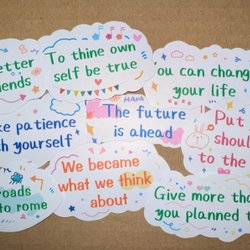 etter
iends
To thine own
self be true
ou can change
your life
ke patience
th yourself
The future
is ahead
Put
shoul
to the
We became
what we think
about
oads
to rome
Give more tha
you planned t